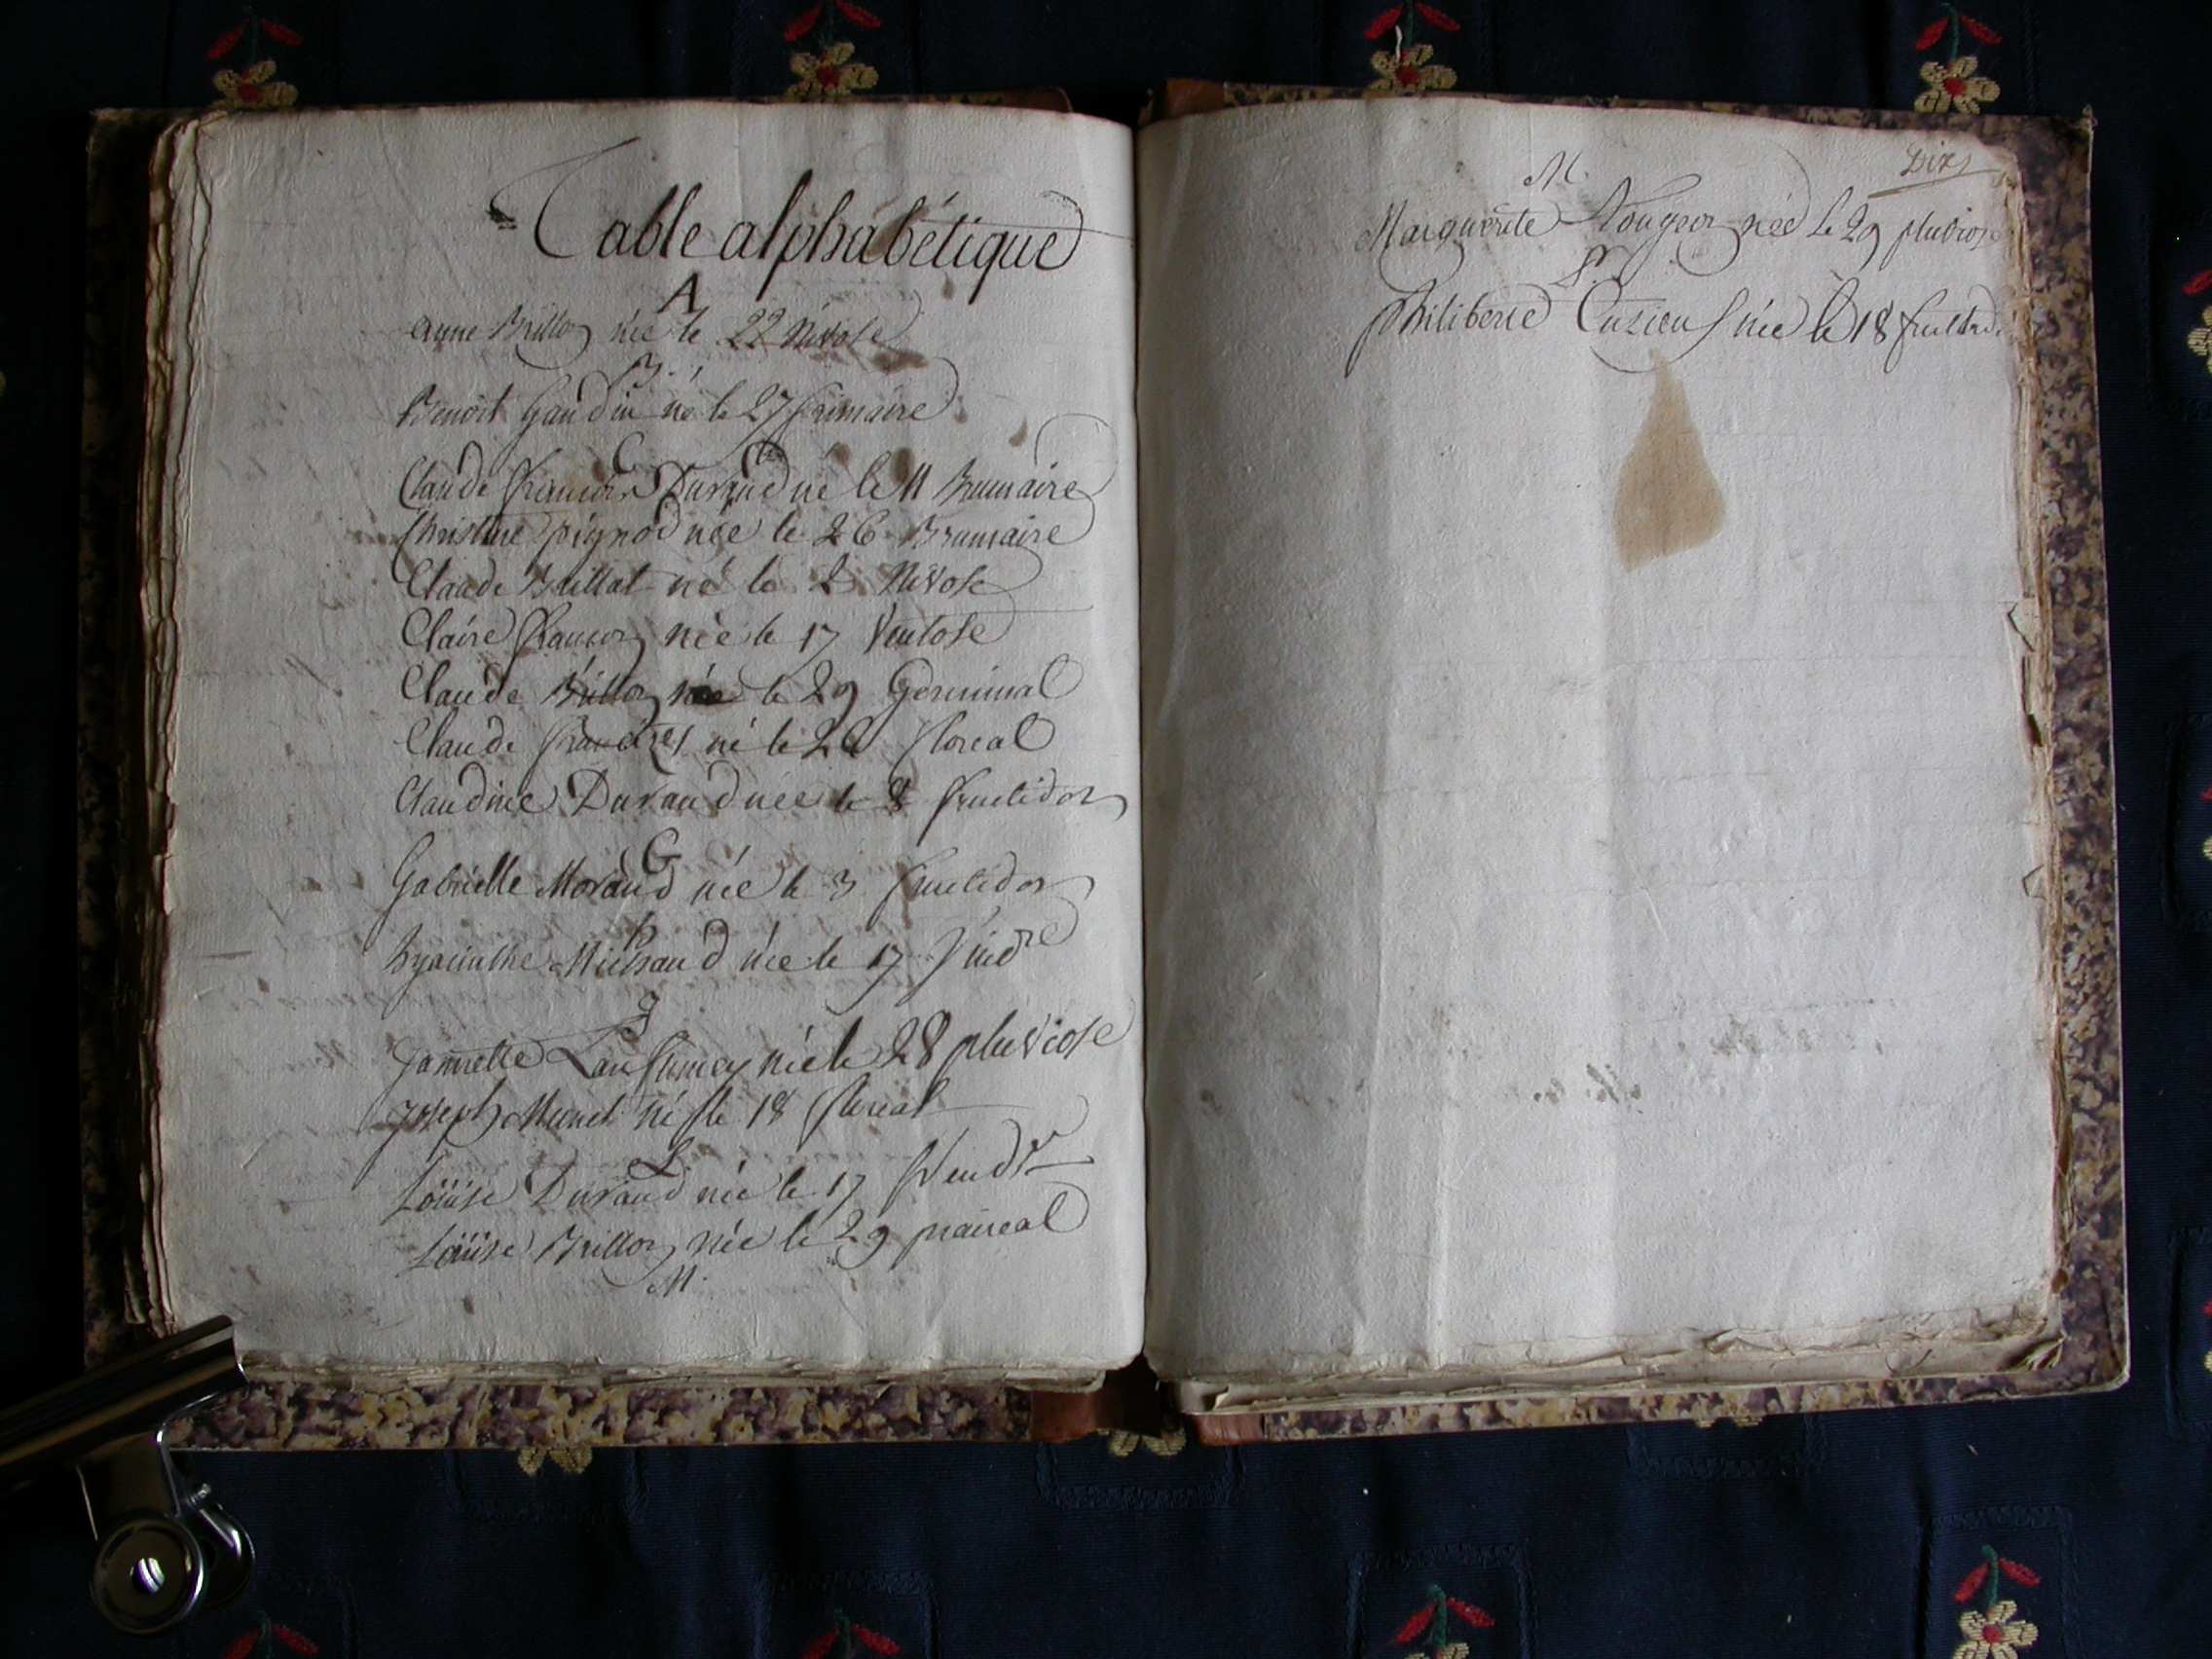 Table alphabétique
A
anne Brillon née le 22 Nivose
B.
Benoit Gaudin né le 27 frimaire
C
Claude François Durand né le 11 Brumaire
Christine pignod née le 26 Brumaire
Claude Brillat né le 2 Nivose
Claire née le 17 Ventose
Claude Brillon née le 29 Germinal
Claude né le 26 floreal
Claudine Durand née le 8 fructidor
G
Gabrielle Moraud née le 3 fructidor
h
hyacinthe Michaud née le 17
J
Jannette née le 28 pluviose
Joseph Munet né le 18 floreal
L.
Louise Durand née le 17 Vendre
Louise Brillon née le 29 praireal
M.
Dix
M.
Marguerite née le 29 pluviose
P.
philiberte née le 18 fructid